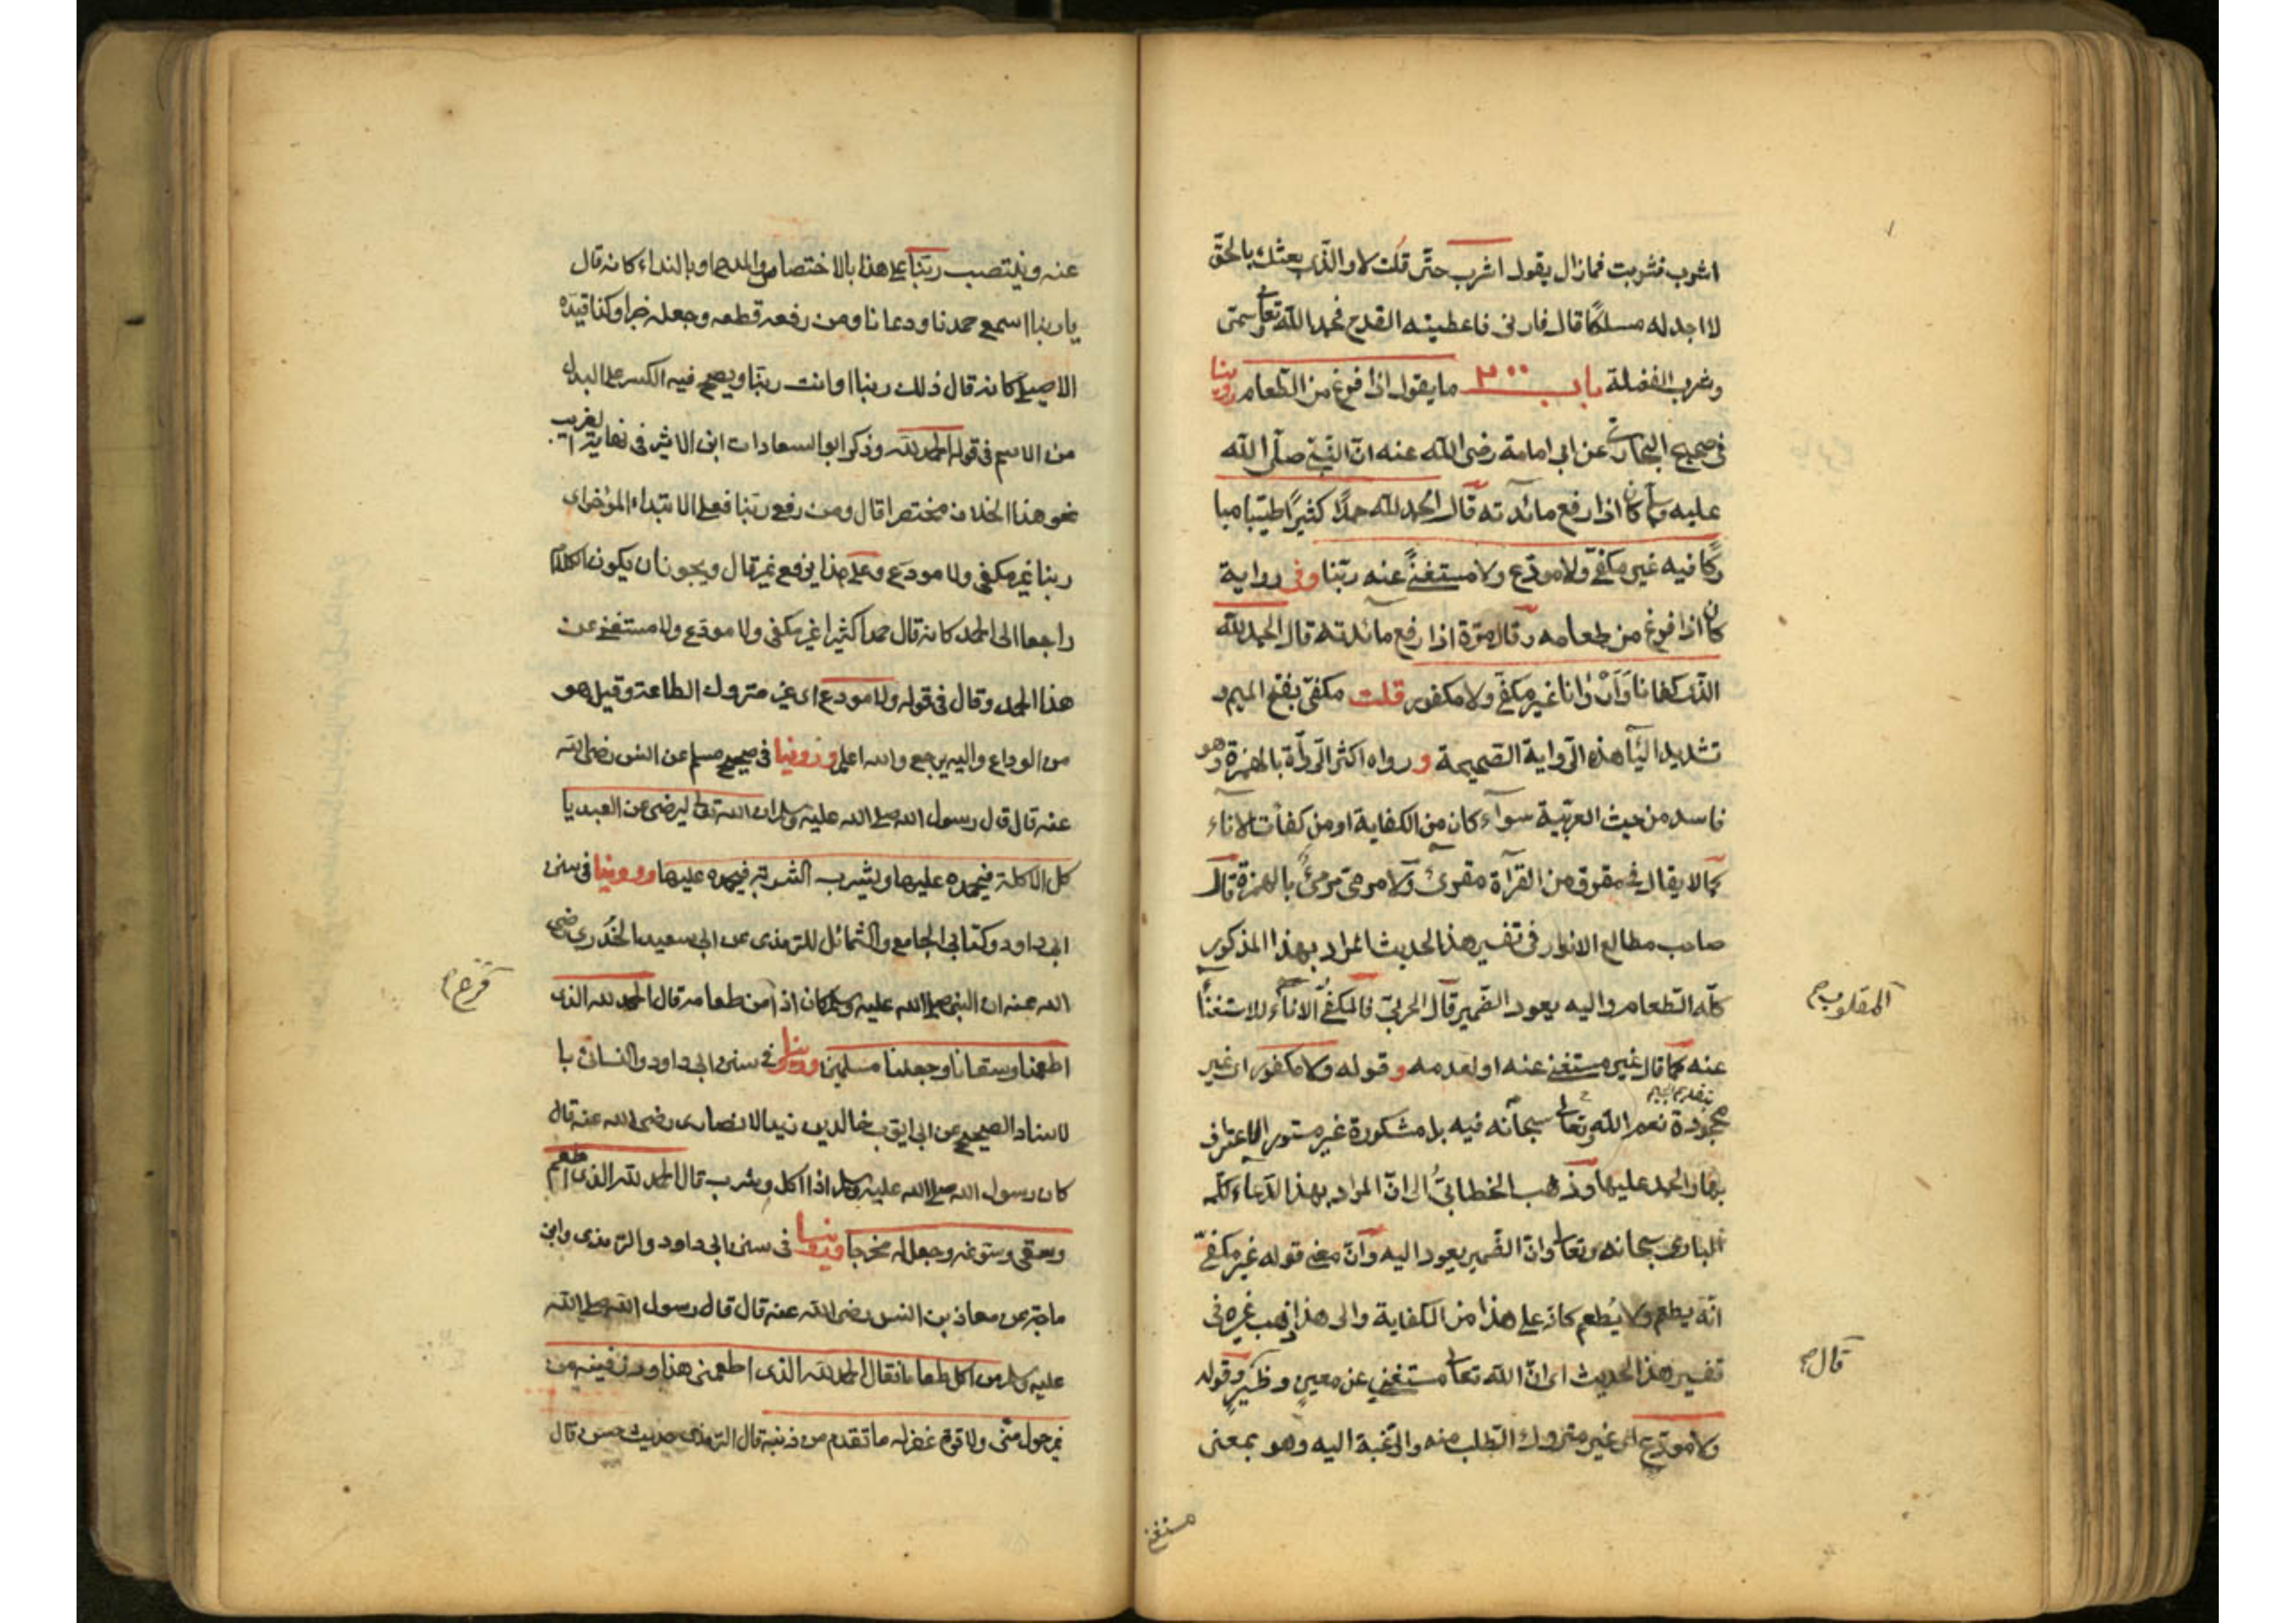 اشرب فشربت فمازال يقول اشرب حتّى قلت لا والذّى بعثك بالحقّ
لا اجد له مسلكًا قال فارنى فاعطيته القدح فحمد الله تعالى وسمّى
وشرب الفضلة باب ما يقول اذا فرغ من الطّعام روينا
فى صحيح البخارى عن ابى امامة رضى الله عنه انّ النّبىّ صلّى الله
عليه وسلم كان اذا رفع مائدته قال الحمد لله حمدًا كثيرًا طيّبا مبا
ركًا فيه غير مكفىّ ولا مودّع ولا مستغنىً عنه ربّنا وفى رواية
كان اذا فرغ من طعامه وقال مرّة اذا رفع مائدته قال الحمد لله
الذّى كفانا وَاَرْوانا غير مكفىّ ولا مكفور قلت مكفىّ بفتح الميم و
تشديد اليآء هذه الرّواية الصّحيحة و رواه اكثر الرّواة بالهمزة وهو
فاسد من حيث العربّية سوآء كان من الكفاية او من كفأت الاناء
كما لا يقال فى مقروّ من القرآة مقرىّ ولا مرمىّ مرمئٌ بالهمزة قال
صاحب مطالع الانوار فى تفسير هذا لحديث المراد بهذا المذكور
كلّه الطّعام واليه يعود الضّمير قال الحربىّ فالمكفىُّ الاناءُ للاستغناً
المقلوب صح
عنه كما قال غير مستغنى عنه او لعدمه و قوله ولا مكفور اى غير
مجحودة نعم الله وتعالى سبحانه فيه بل مشكورة غير مستور الاعتراف
بها والحمد عليها وذهب الخطّابىّ الى انّ المراد بهذا الدّعاء كلّه
البارى سبحانه وتعالى وانّ الضّمير يعود اليه وانّ معنى قوله غير مكفىّ
انّه يطعم ولا يُطعم كانه على هذا من الكفاية والى هذا ذهب غيره فى
تفسير هذا الحديث اى انّ الله تعالى مستغنى عن معينٍ وظهيرٍ وقوله
قال صح
ولا مودّع اى غير متروك الطّلب منه والرّغبة اليه وهو بمعنى
مستغنى
عنه وينتصب ربّنا على هذا بالاختصاص والمدح او بالنداء كانه قال
يا ربنا اسمع حمدنا ودعانا ومن رفعه قطعه وجعله خبرا وكذا قيده
الاصيلى كانه قال ذلك ربنا او انت ربّنا ويصح فيه الكسر على البدل
من الاسم فى قوله الحمد لله وذكر ابو السعادات ابن الاثير فى نهاية الغريب
نحو هذا الخلاف مختصرا قال ومن رفع ربّنا فعلى الابتداء المؤخر اى
ربنا غير مكفى ولا مودع وعلى هذا يرفع غير قال ويجوز ان يكون الكلام
راجعا الى الحمد كانه قال حمدا كثيرا غير مكفى ولا مودع ولا مستغنى عن
هذا الحمد وقال فى قوله ولا مودع اى غير متروك الطاعة وقيل هو
من الوداع واليه يرجع والله اعلم وروينا فى صحيح مسلم عن انس رضى الله
عنه قال قال رسول الله صلى الله عليه وسلم ان الله تعالى ليرضى عن العبد يا
كل الاكلة فيحمده عليها ويشرب الشربة فيحمده عليها وروينا فى سنن
ابى داود وكتابى الجامع والشمائل للترمذى عن ابى سعيد الخدرى رضى
الله عنه ان النبى صلى الله عليه وسلم كان اذا من طعامه قال الحمد لله الذى
فرغ صح
اطعمنا وسقانا وجعلنا مسلمين وروينا فى سنن ابى داود والنسائى با
لاسناد الصحيح عن ابى ايّوب خالد بن زيد الانصارى رضى الله عنه قال
كان رسول الله صلى الله عليه وسلم اذا اكل وشرب قال الحمد لله الذى اطعم
وسقى وسوّغه وجعل له مخرجا وروينا فى سنن ابى داود والترمذى وابن
ماجة عن معاذ بن انس رضى الله عنه قال قال رسول الله صلى الله
عليه وسلم من اكل طعاما فقال الحمد لله الذى اطعمنى هذا ورزقنيه من
غير حول منّى ولا قوة غفر له ما تقدم من ذنبه قال الترمذى حديث حسن قال